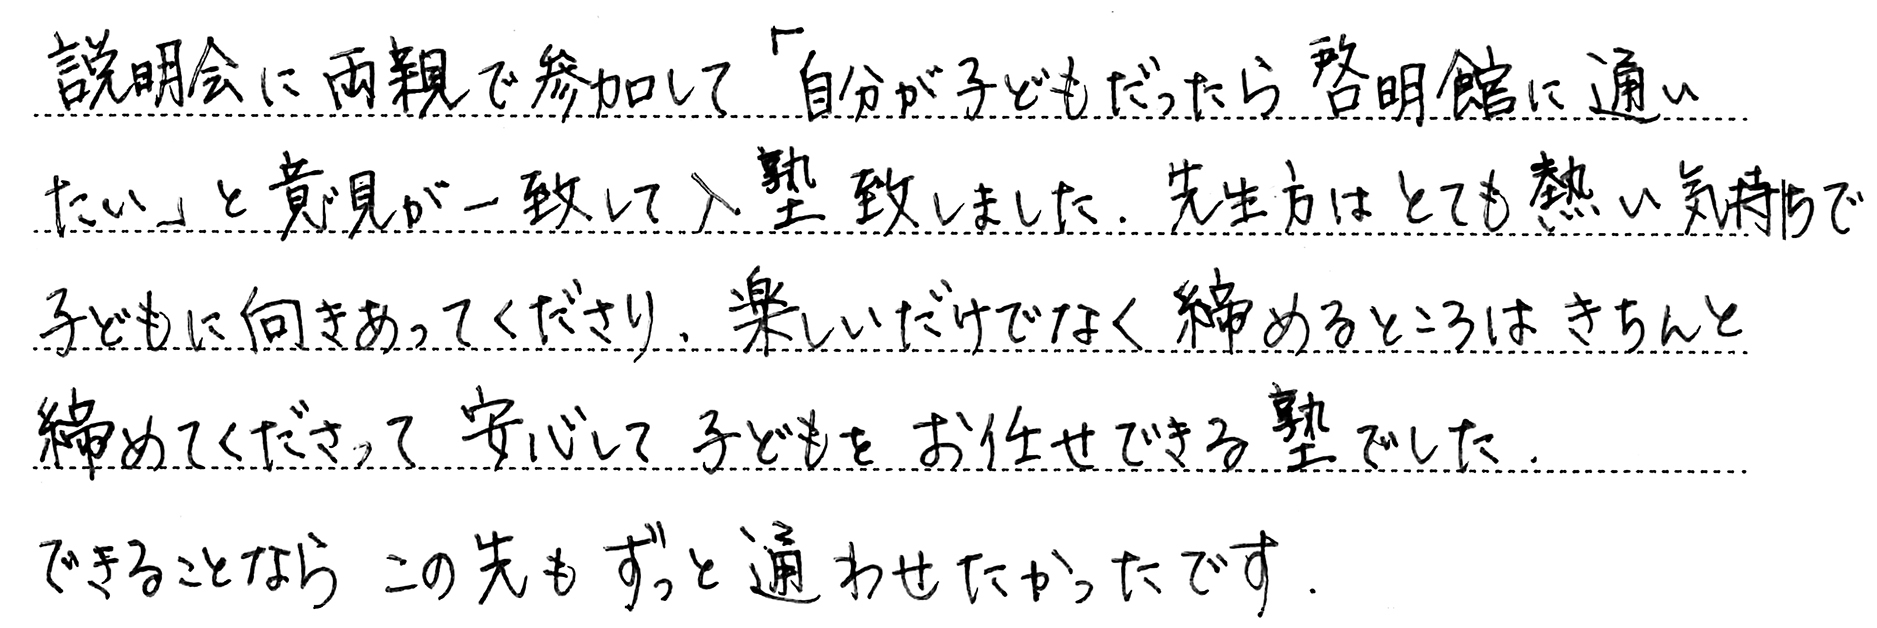 説明会に両親で参加して「自分が子どもだったら啓明館に通い
たい」と意見が一致して入塾致しました. 先生方はとても熱い気持ちで
子どもに向きあってくださり、楽しいだけでなく締めるところはきちんと
締めてくださって安心して子どもをお任せできる塾でした.
できることならこの先もずっと通わせたかったです.